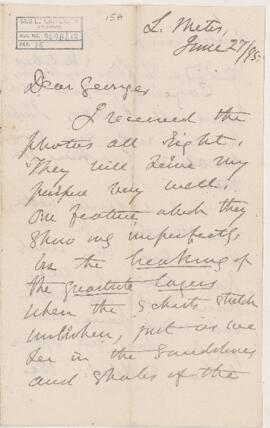 15A
L. Metis,
June 27/95.
Dear George,
I received the
photos all right.
They will serve my
purpose very well.
One feature which they
show imperfectly
is the breaking of
the quartzite layers
when the schists stretch
unbroken, just as we
see in the sandstones
and shales of the